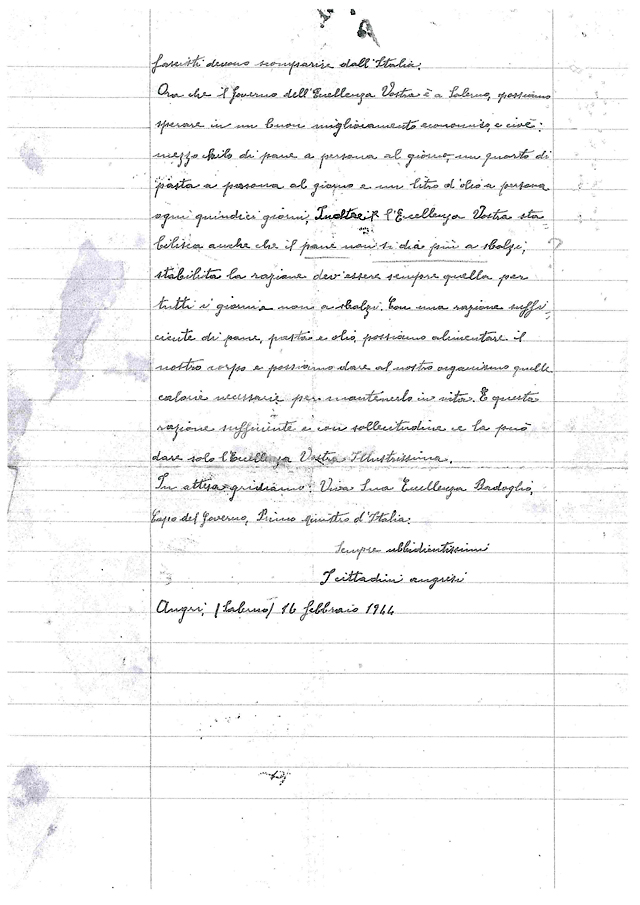 fascisti devono scomparire dall'Italia.
Ora che il Governo dell'Eccellenza Vostra è a Salerno, possiamo
sperare in un buon miglioramento economico, e cioè:
mezzo kilo di pane a persona al giorno, un quarto di
pasta a persona al giorno e un litro d'olio a persona
ogni quindici giorni; Inoltre l'Eccellenza Vostra sta
bilisca anche che il pane non si dia più a sbalzi;
stabilita la razione dev'essere sempre quella per
tutti i giorni e non a sbalzi. Con una razione suffi-
ciente di pane, pasta e olio, possiamo alimentare il
nostro corpo e possiamo dare al nostro organismo quelle
calorie necessarie per mantenerlo in vita. E questa
razione sufficiente e con sollecitudine ce la può
dare solo l'Eccellenza Vostra Illustrissima.
In attesa gridiamo: Viva Sua Eccellenza Badoglio,
Capo del Governo, Primo Ministro d'Italia.
Sempre ubbidientissimi
I cittadini angresi
Angri, (Salerno) 16 febbraio 1944